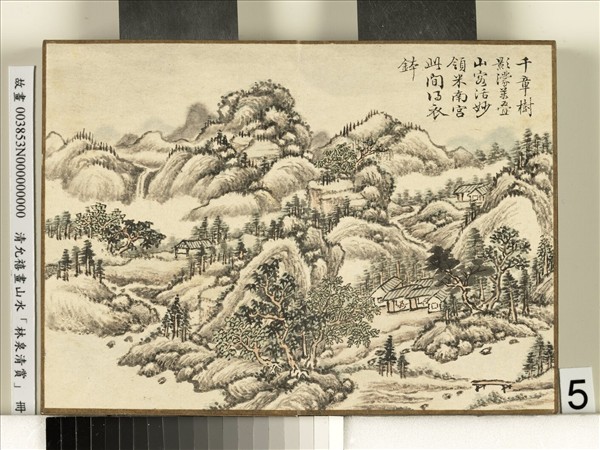 千章樹
影濃萬疊
山容活妙
領米南宮
此間得衣
鉢
故畫 003853N000000000 清允禧畫山水「林泉清賞」 冊
5